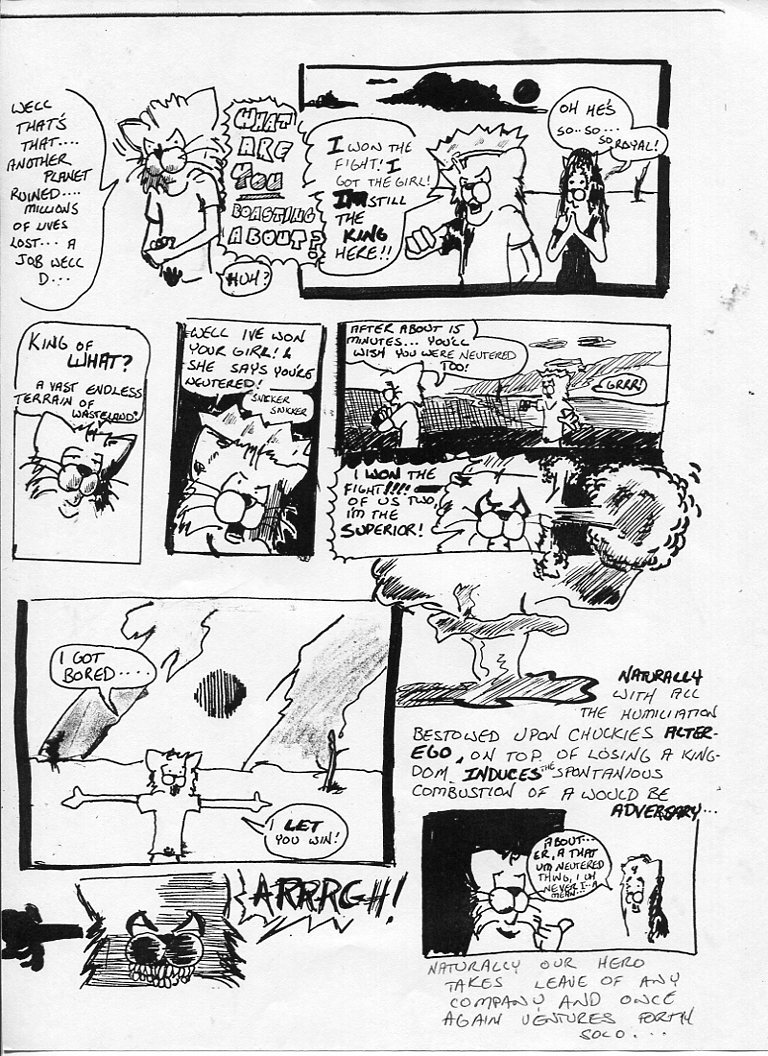 WELL
THAT'S
THAT....
ANOTHER
PLANET
RUINED....
MILLIONS
OF LIVES
LOST... A
JOB WELL
D...
WHAT
ARE
YOU
BOASTING
ABOUT?
HUH?
I WON THE
FIGHT! I
GOT THE GIRL!
I'M STILL
THE
KING
HERE!!
OH HE'S
SO..SO...
SO ROYAL!
KING OF
WHAT?
A VAST ENDLESS
TERRAIN OF
WASTELAND?
WELL IVE WON
YOUR GIRL! &
SHE SAYS YOU'RE
NEUTERED!
SNICKER
SNICKER
AFTER ABOUT 15
MINUTES... YOU'LL
WISH YOU WERE NEUTERED
TOO!
GRRR!
I WON THE
FIGHT!!!!
OF US TWO,
I'M THE
SUPERIOR!
I GOT
BORED....
I LET
YOU WIN!
NATURALLY
WITH ALL
THE HUMILIATION
BESTOWED UPON CHUCKIES ALTER-
EGO, ON TOP OF LOSING A KING-
DOM. INDUCES THE SPONTANIOUS
COMBUSTION OF A WOULD BE
ADVERSARY...
ARRRGH!
ABOUT...
ER, A THAT
UM NEUTERED
THING, I UH
NEVER I..A
MEAN...
NATURALLY OUR HERO
TAKES LEAVE OF ANY
COMPANY, AND ONCE
AGAIN VENTURES FORTH
SOLO....